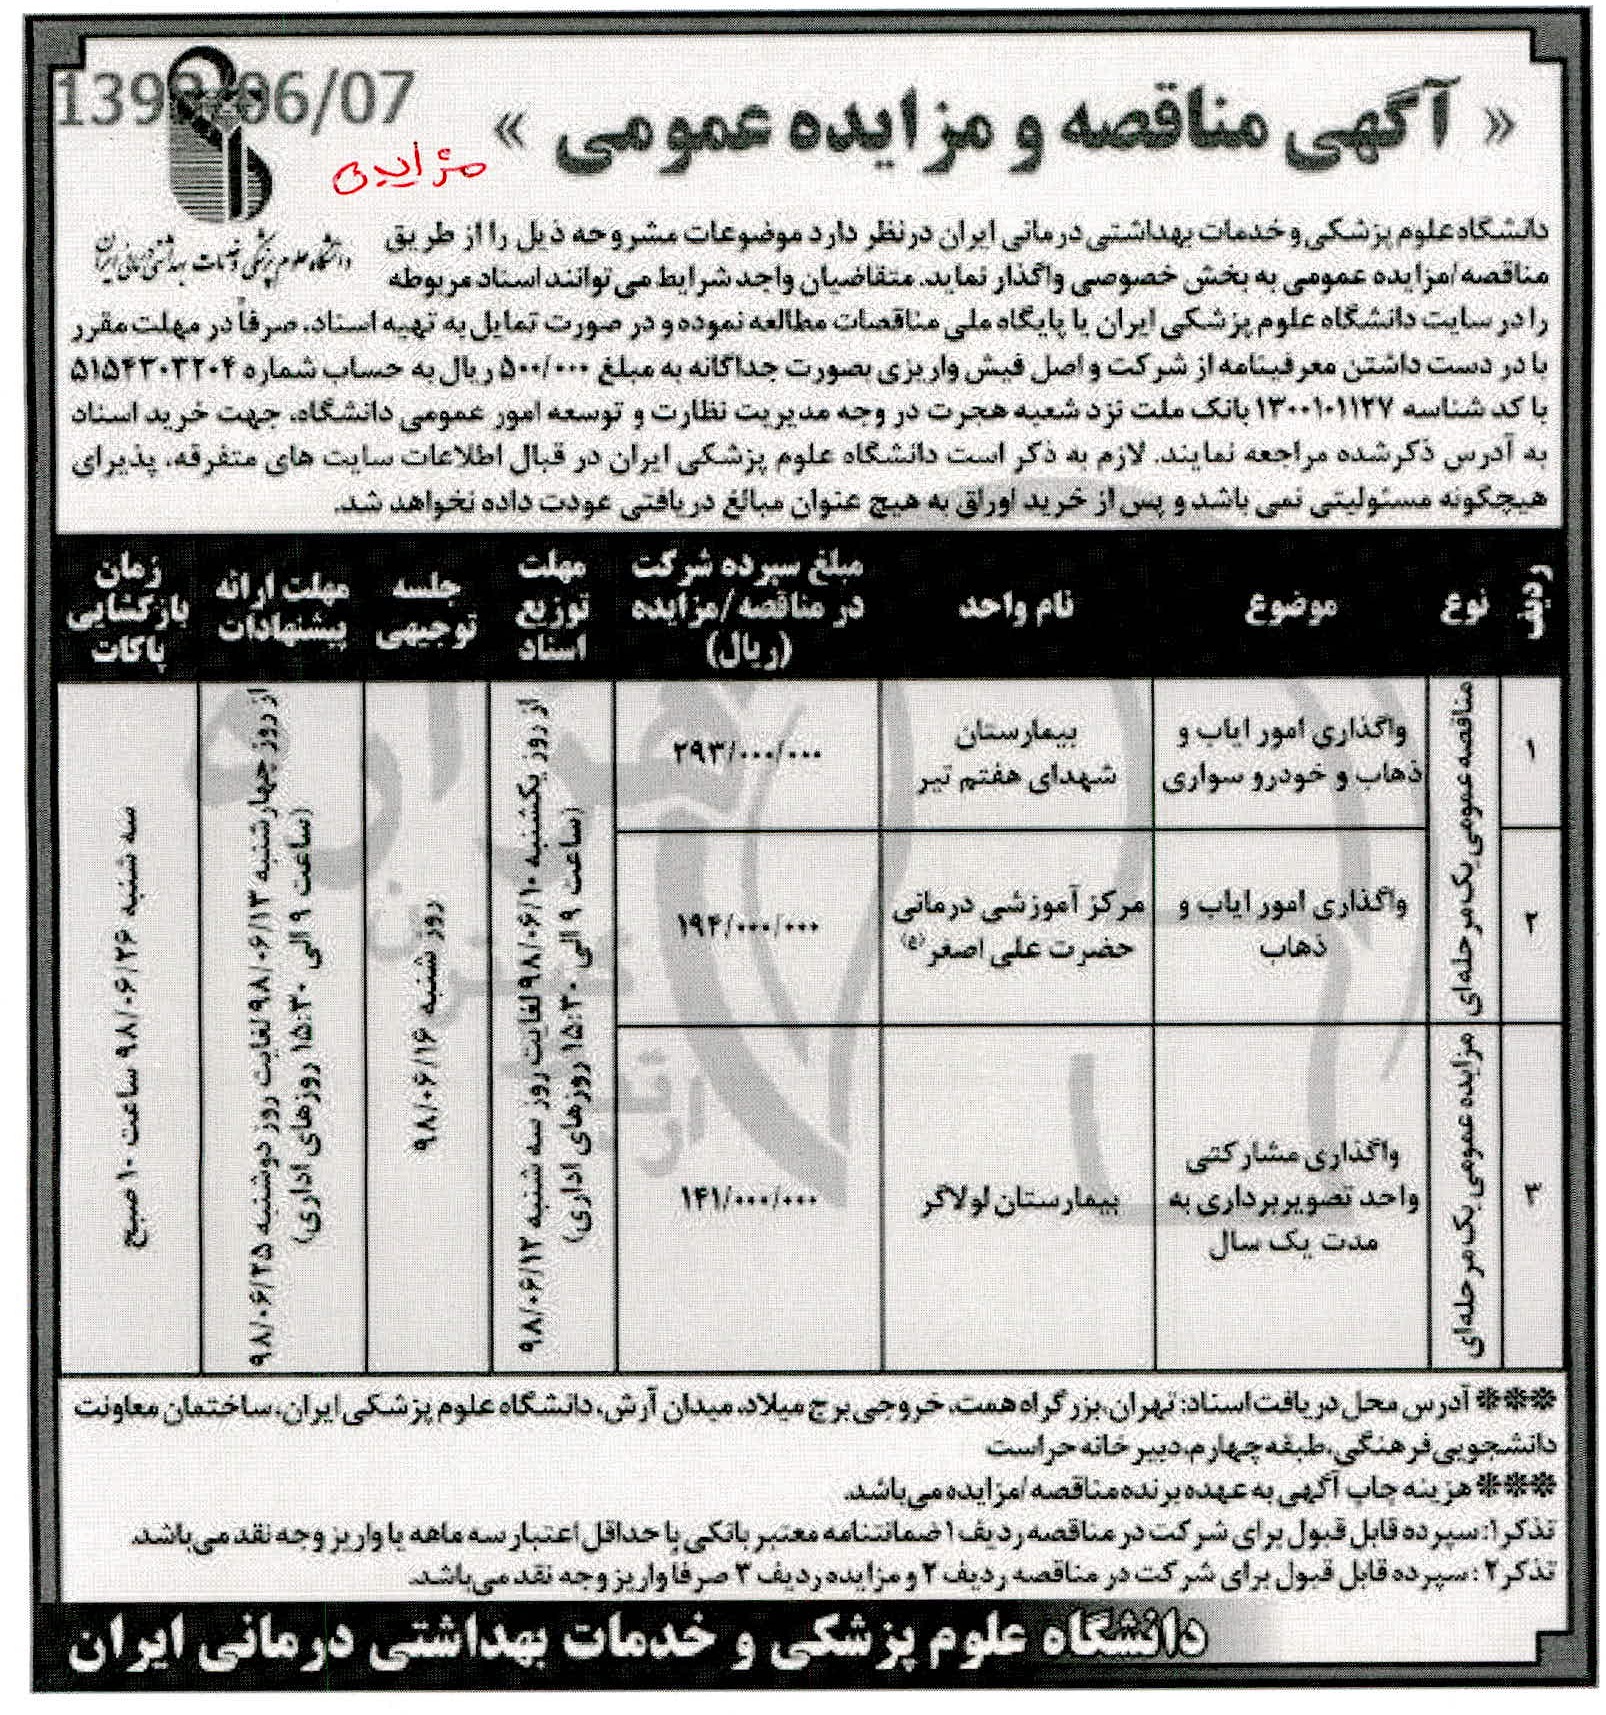 « آگهی مناقصه و مزایده عمومی »
1398/06/07
مزایده
دانشگاه علوم پزشکی و خدمات بهداشتی درمانی ایران
دانشگاه علوم پزشکی و خدمات بهداشتی درمانی ایران در نظر دارد موضوعات مشروحه ذیل را از طریق
مناقصه/مزایده عمومی به بخش خصوصی واگذار نماید. متقاضیان واجد شرایط می توانند اسناد مربوطه
را در سایت دانشگاه علوم پزشکی ایران یا پایگاه ملی مناقصات مطالعه نموده و در صورت تمایل به تهیه اسناد، صرفاً در مهلت مقرر
با در دست داشتن معرفینامه از شرکت و اصل فیش واریزی بصورت جداگانه به مبلغ ۵۰۰/۰۰۰ ریال به حساب شماره ۵۱۵۴۳۰۳۲۰۴
با کد شناسه ۱۳۰۰۱۰۱۱۲۷ بانک ملت نزد شعبه هجرت در وجه مدیریت نظارت و توسعه امور عمومی دانشگاه، جهت خرید اسناد
به آدرس ذکرشده مراجعه نمایند. لازم به ذکر است دانشگاه علوم پزشکی ایران در قبال اطلاعات سایت های متفرقه، پذیرای
هیچگونه مسئولیتی نمی باشد و پس از خرید اوراق به هیچ عنوان مبالغ دریافتی عودت داده نخواهد شد.
ردیف
نوع
موضوع
نام واحد
مبلغ سپرده شرکت
در مناقصه/مزایده
(ریال)
مهلت
توزیع
اسناد
جلسه
توجیهی
مهلت ارائه
پیشنهادات
زمان
بازگشایی
پاکات
۱
مناقصه عمومی یک مرحله‌ای
واگذاری امور ایاب و
ذهاب و خودرو سواری
بیمارستان
شهدای هفتم تیر
۲۹۳/۰۰۰/۰۰۰
از روز یکشنبه ۹۸/۰۶/۱۰ لغایت روز سه شنبه ۹۸/۰۶/۱۲
(ساعت ۹ الی ۱۵:۳۰ روزهای اداری)
روز شنبه ۹۸/۰۶/۱۶
از روز چهارشنبه ۹۸/۰۶/۱۳ لغایت روز دوشنبه ۹۸/۰۶/۲۵
(ساعت ۹ الی ۱۵:۳۰ روزهای اداری)
سه شنبه ۹۸/۰۶/۲۶ ساعت ۱۰ صبح
۲
واگذاری امور ایاب و
ذهاب
مرکز آموزشی درمانی
حضرت علی اصغر (ع)
۱۹۴/۰۰۰/۰۰۰
۳
مزایده عمومی یک مرحله‌ای
واگذاری مشارکتی
واحد تصویربرداری به
مدت یک سال
بیمارستان لولاگر
۱۴۱/۰۰۰/۰۰۰
*** آدرس محل دریافت اسناد: تهران، بزرگراه همت، خروجی برج میلاد، میدان آرش، دانشگاه علوم پزشکی ایران، ساختمان معاونت
دانشجویی فرهنگی، طبقه چهارم، دبیرخانه حراست
*** هزینه چاپ آگهی به عهده برنده مناقصه/مزایده می‌باشد.
تذکر۱: سپرده قابل قبول برای شرکت در مناقصه ردیف ۱ ضمانتنامه معتبر بانکی با حداقل اعتبار سه ماهه یا واریز وجه نقد می‌باشد.
تذکر۲: سپرده قابل قبول برای شرکت در مناقصه ردیف ۲ و مزایده ردیف ۳ صرفا واریز وجه نقد می‌باشد.
دانشگاه علوم پزشکی و خدمات بهداشتی درمانی ایران